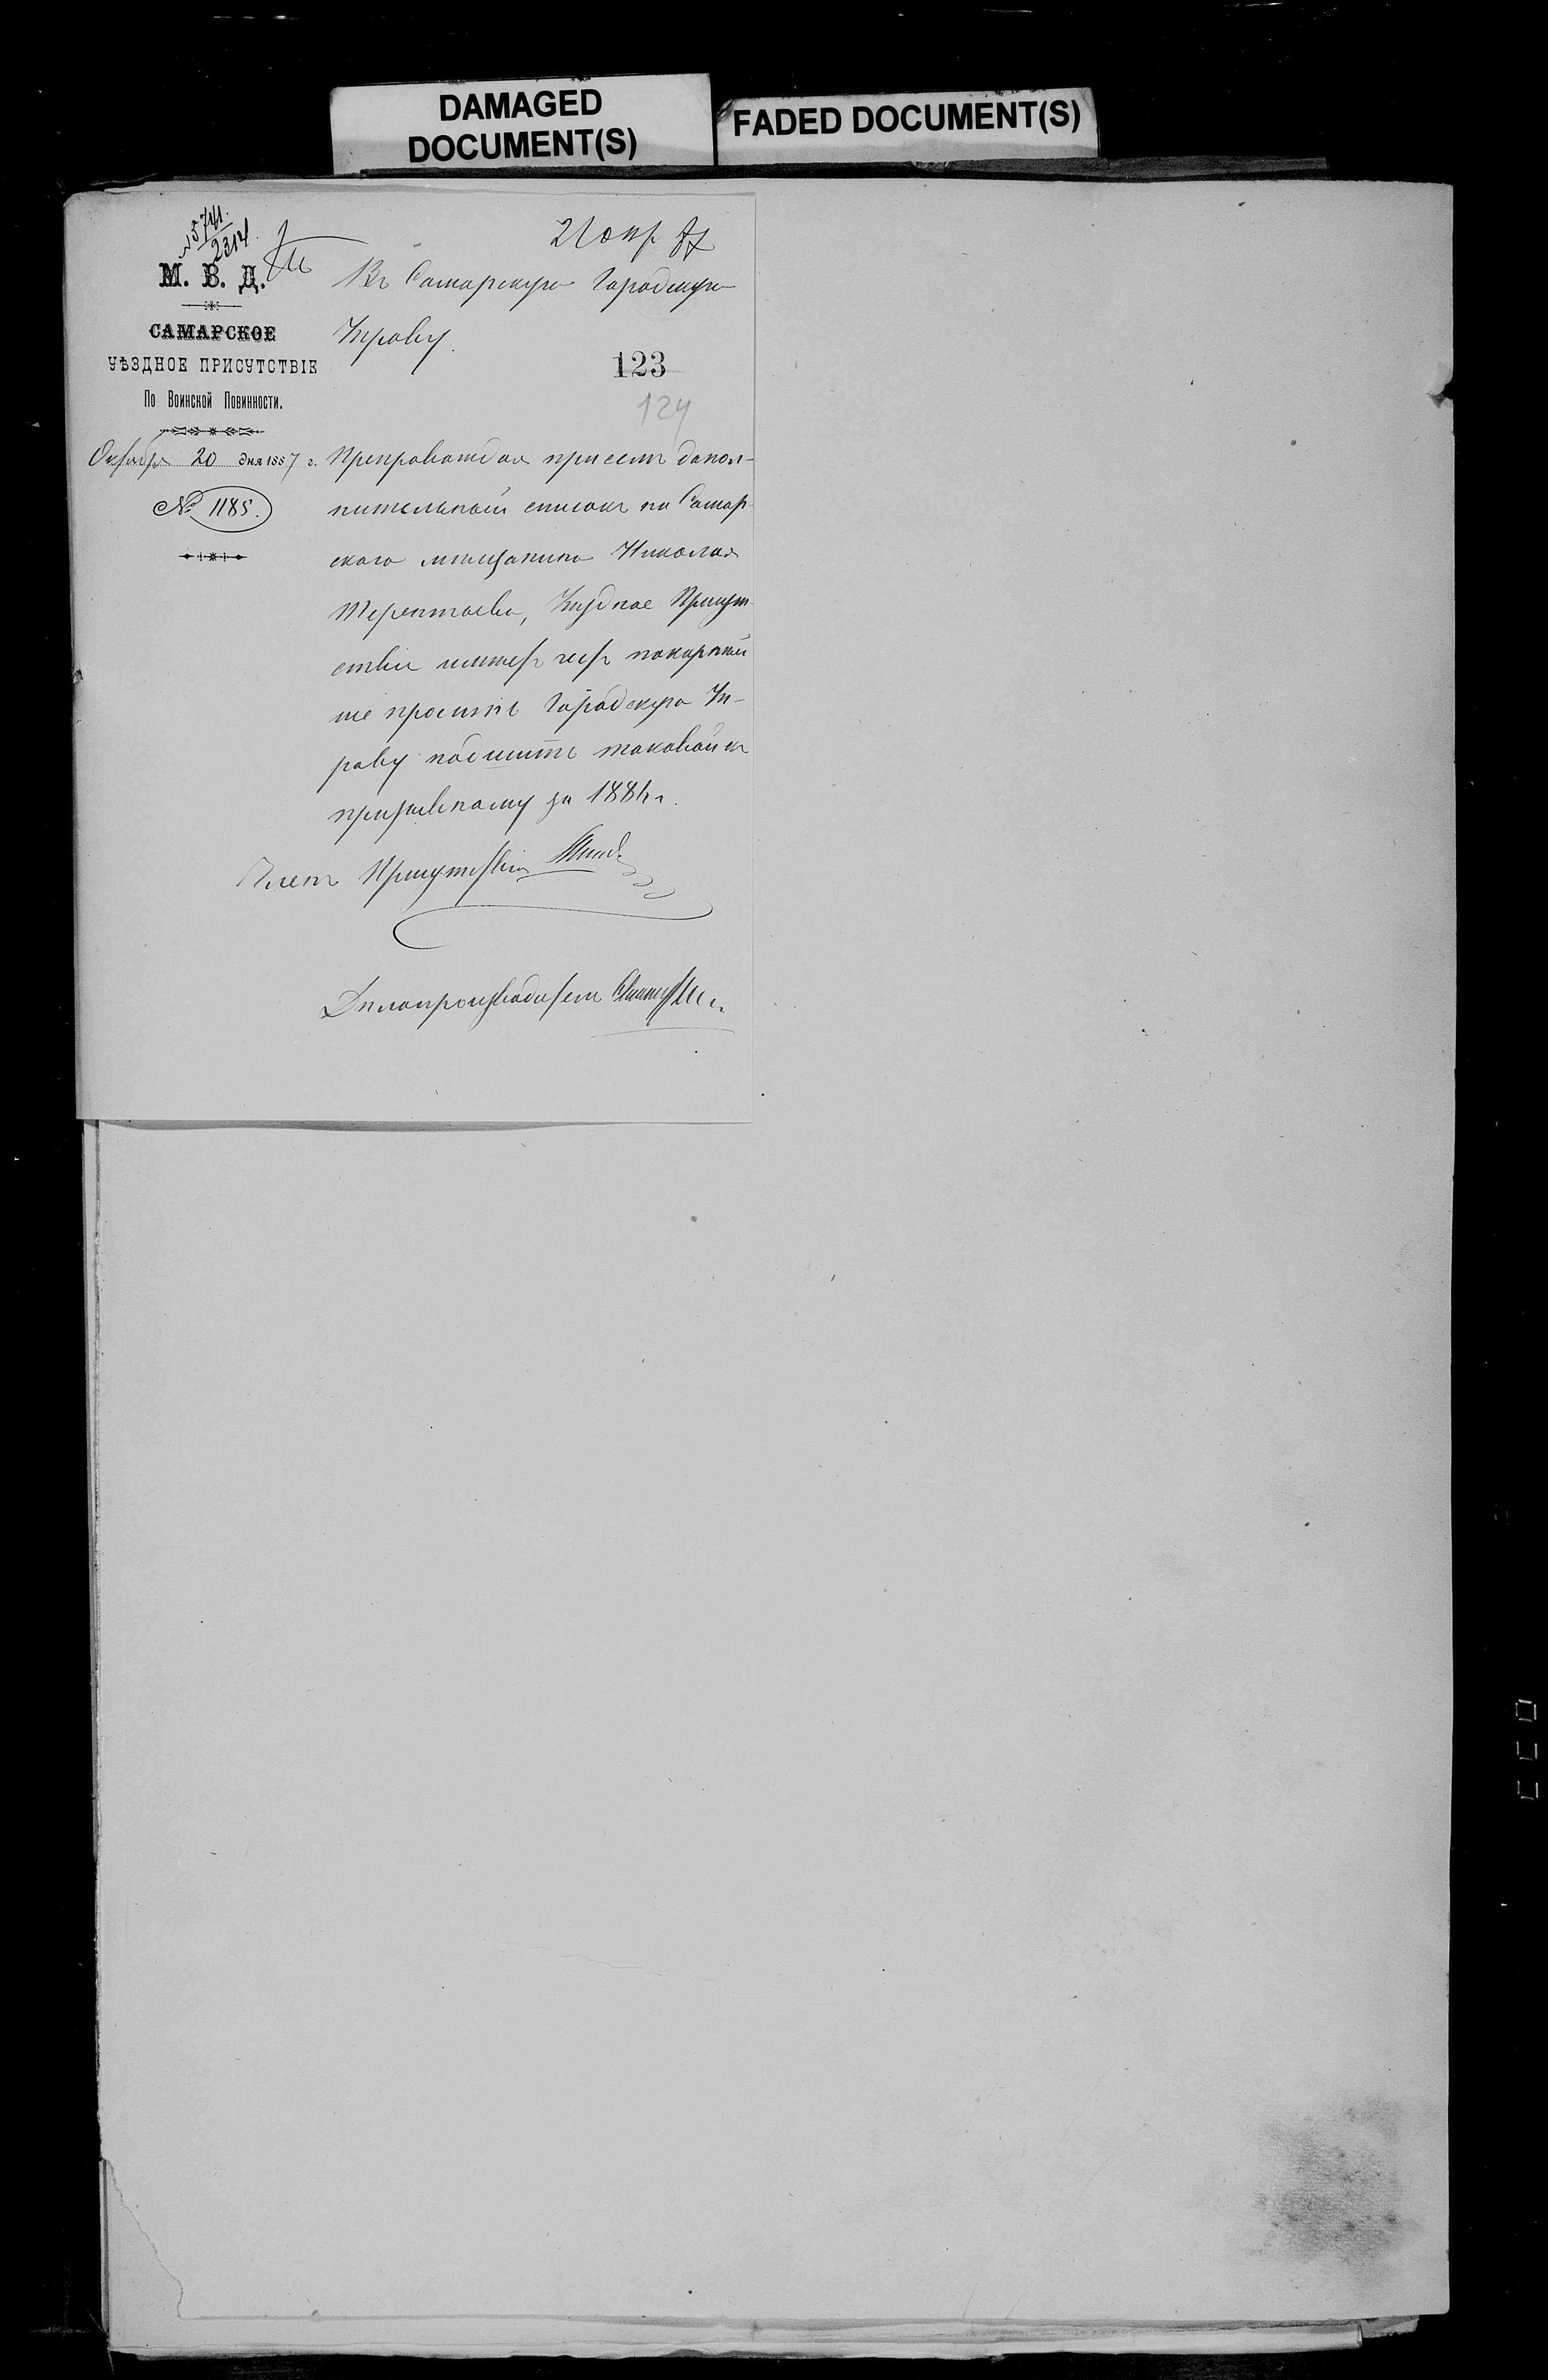 DAMAGED
DOCUMENT(S)
FADED DOCUMENT(S)
№ 5741.
2314.
21 окт 87
М. В. Д.
САМАРСКОЕ
УѢЗДНОЕ ПРИСУТСТВІЕ
По Воинской Повинности.
Октября 20 дня 1887 г.
№ 1185.
Въ Самарскую Городскую
Управу.
123
124
Препровождая присемъ допол-
нительный списокъ на Самар-
скаго мѣщанина Николая
Терентьева, Уѣздное Присут-
ствіе имѣетъ честь покорнѣй
ше просить Городскую Уп-
раву подшить таковой къ
призывному за 1886 г.
Членъ Присутствія
Дѣлопроизводитель